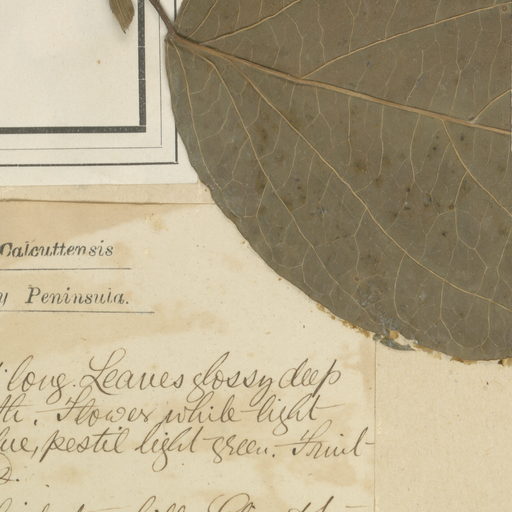 Calcuttensis
y Peninsula.
long. Leaves glossy deep
th. Flower white light
lue, pestil light green. Fruit